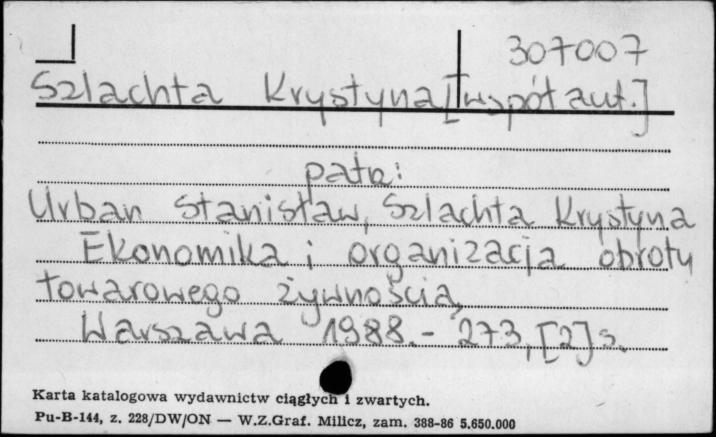 307007
Szlachta Krystyna [współaut.]
patrz:
Urban Stanisław, Szlachta Krystyna
Ekonomika i organizacja obrotu
towarowego żywnością
Warszawa 1988.- 273, [2] s.
Karta katalogowa wydawnictw ciągłych i zwartych.
Pu-B-144, z. 228/DW/ON — W.Z.Graf. Milicz, zam. 388-86 5.650.000